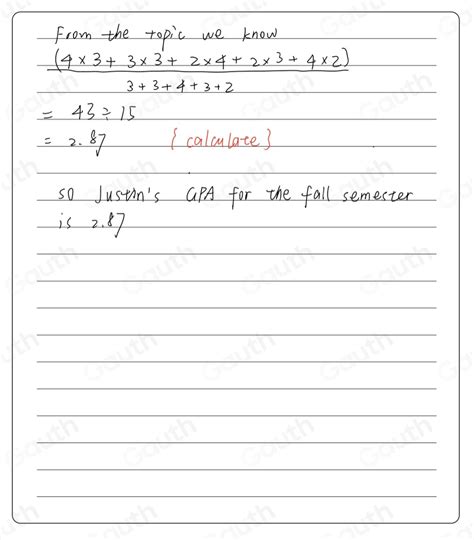 From the topic we know
(4×3+ 3×3+ 2×4+ 2×3+ 4×2)
3+3+4+3+2
= 43÷15
= 2.87 {calculate}
so Justin's GPA for the fall semester
is 2.87